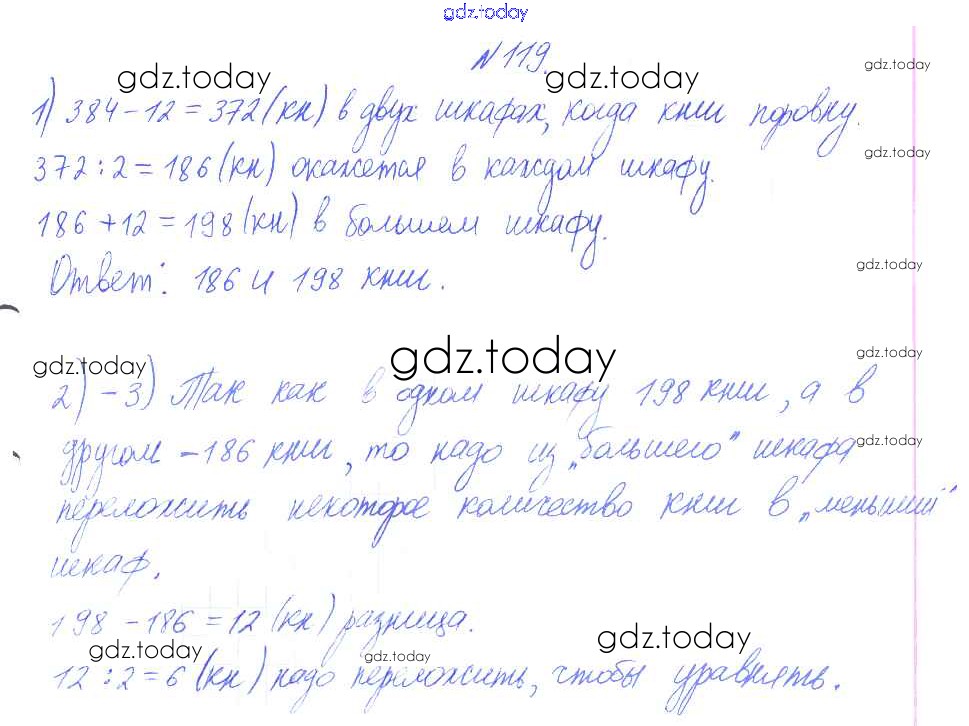 gdz.today
N 119.
gdz.today gdz.today gdz.today
1) 384 - 12 = 372 (кн) в двух шкафах, когда книг поровну.
gdz.today
372 : 2 = 186 (кн) окажется в каждом шкафу.
186 + 12 = 198 (кн) в большем шкафу.
gdz.today
Ответ: 186 и 198 книг.
gdz.today gdz.today gdz.today
2) - 3) Так как в одном шкафу 198 книг, а в
gdz.today
другом - 186 книг, то надо из „большего" шкафа
переложить некоторое количество книг в „меньший"
шкаф.
198 - 186 = 12 (кн) разница.
gdz.today gdz.today gdz.today
12 : 2 = 6 (кн) надо переложить, чтобы уравнять.